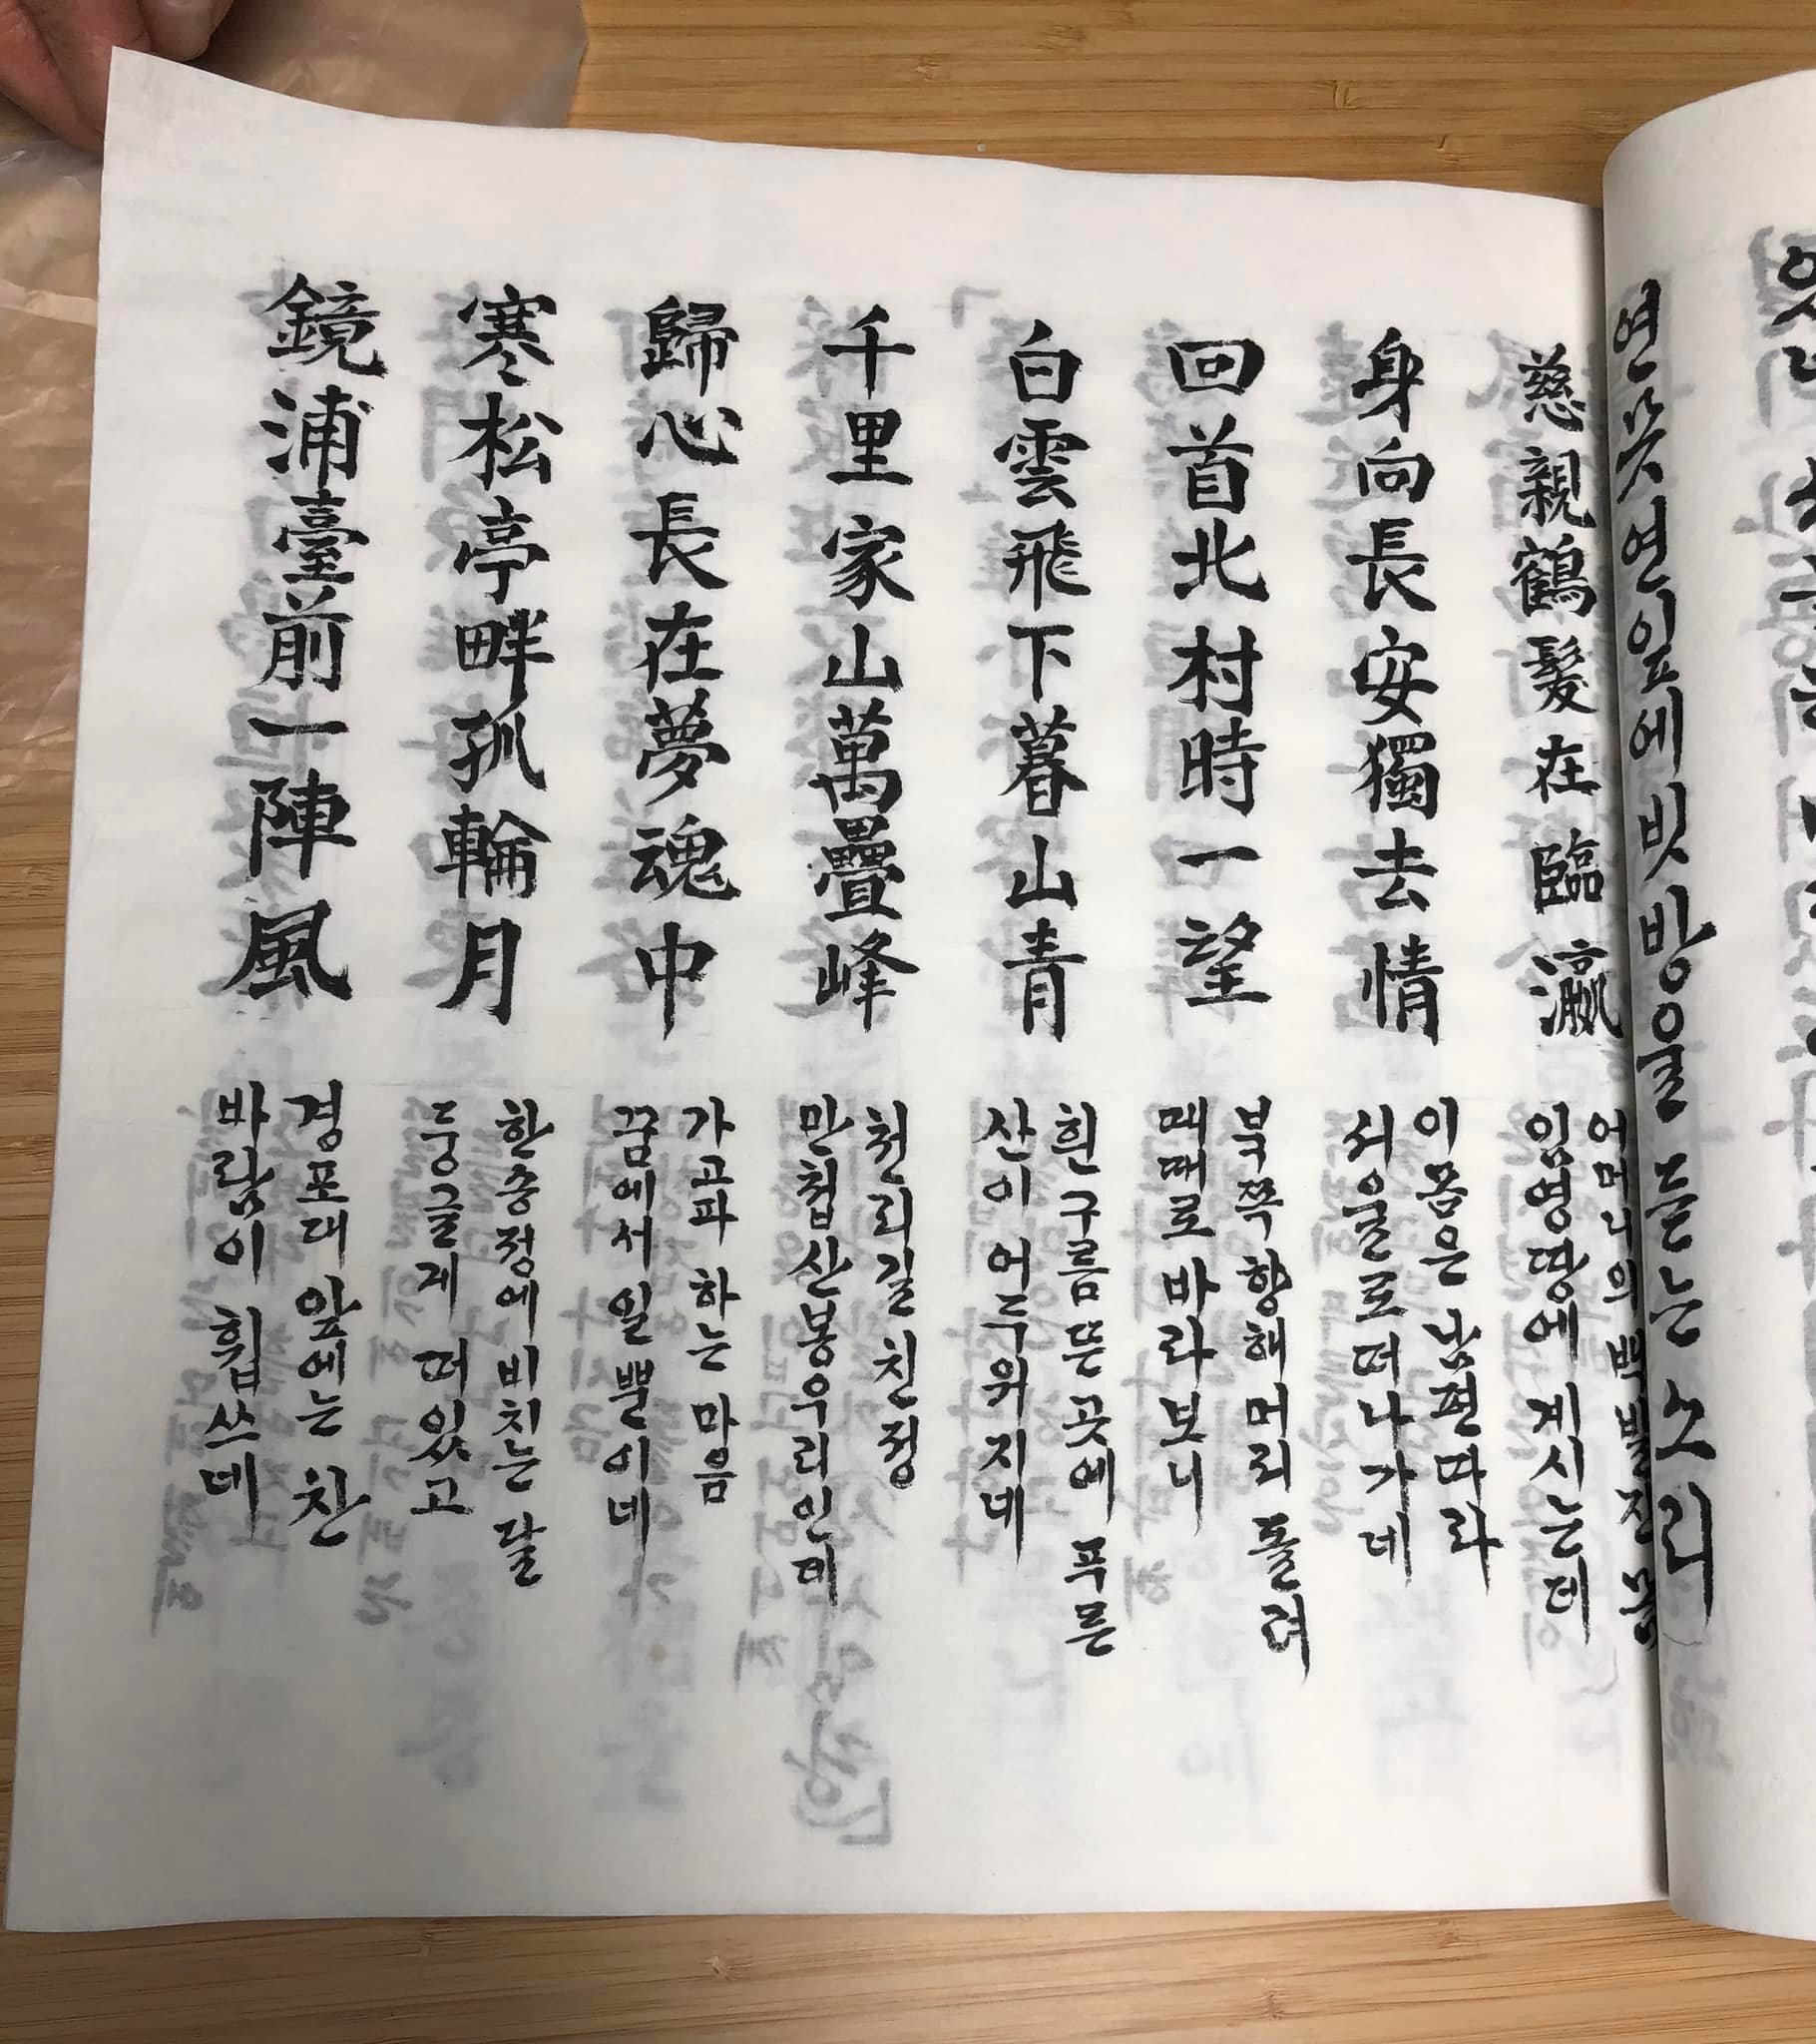 연못연잎에빗방울듣는소리
慈親鶴髮在臨瀛
어머니의백발진
임영땅에 계시는데
身向長安獨去情
이 몸은 남편따라
서울로떠나가네
回首北村時一望
북쪽 향해 머리 돌려
때때로 바라보니
白雲飛下暮山青
흰구름뜬 곳에 푸른
산이 어두워지네
千里家山萬疊峰
천리길 친정
만첩산봉우리인데
歸心長在夢魂中
가고파 하는 마음
꿈에서 일뿐이네
寒松亭畔孤輪月
한송정에비치는 달
둥글게 떠있고
鏡浦臺前一陣風
경포대 앞에는 찬
바람이 휩쓰네